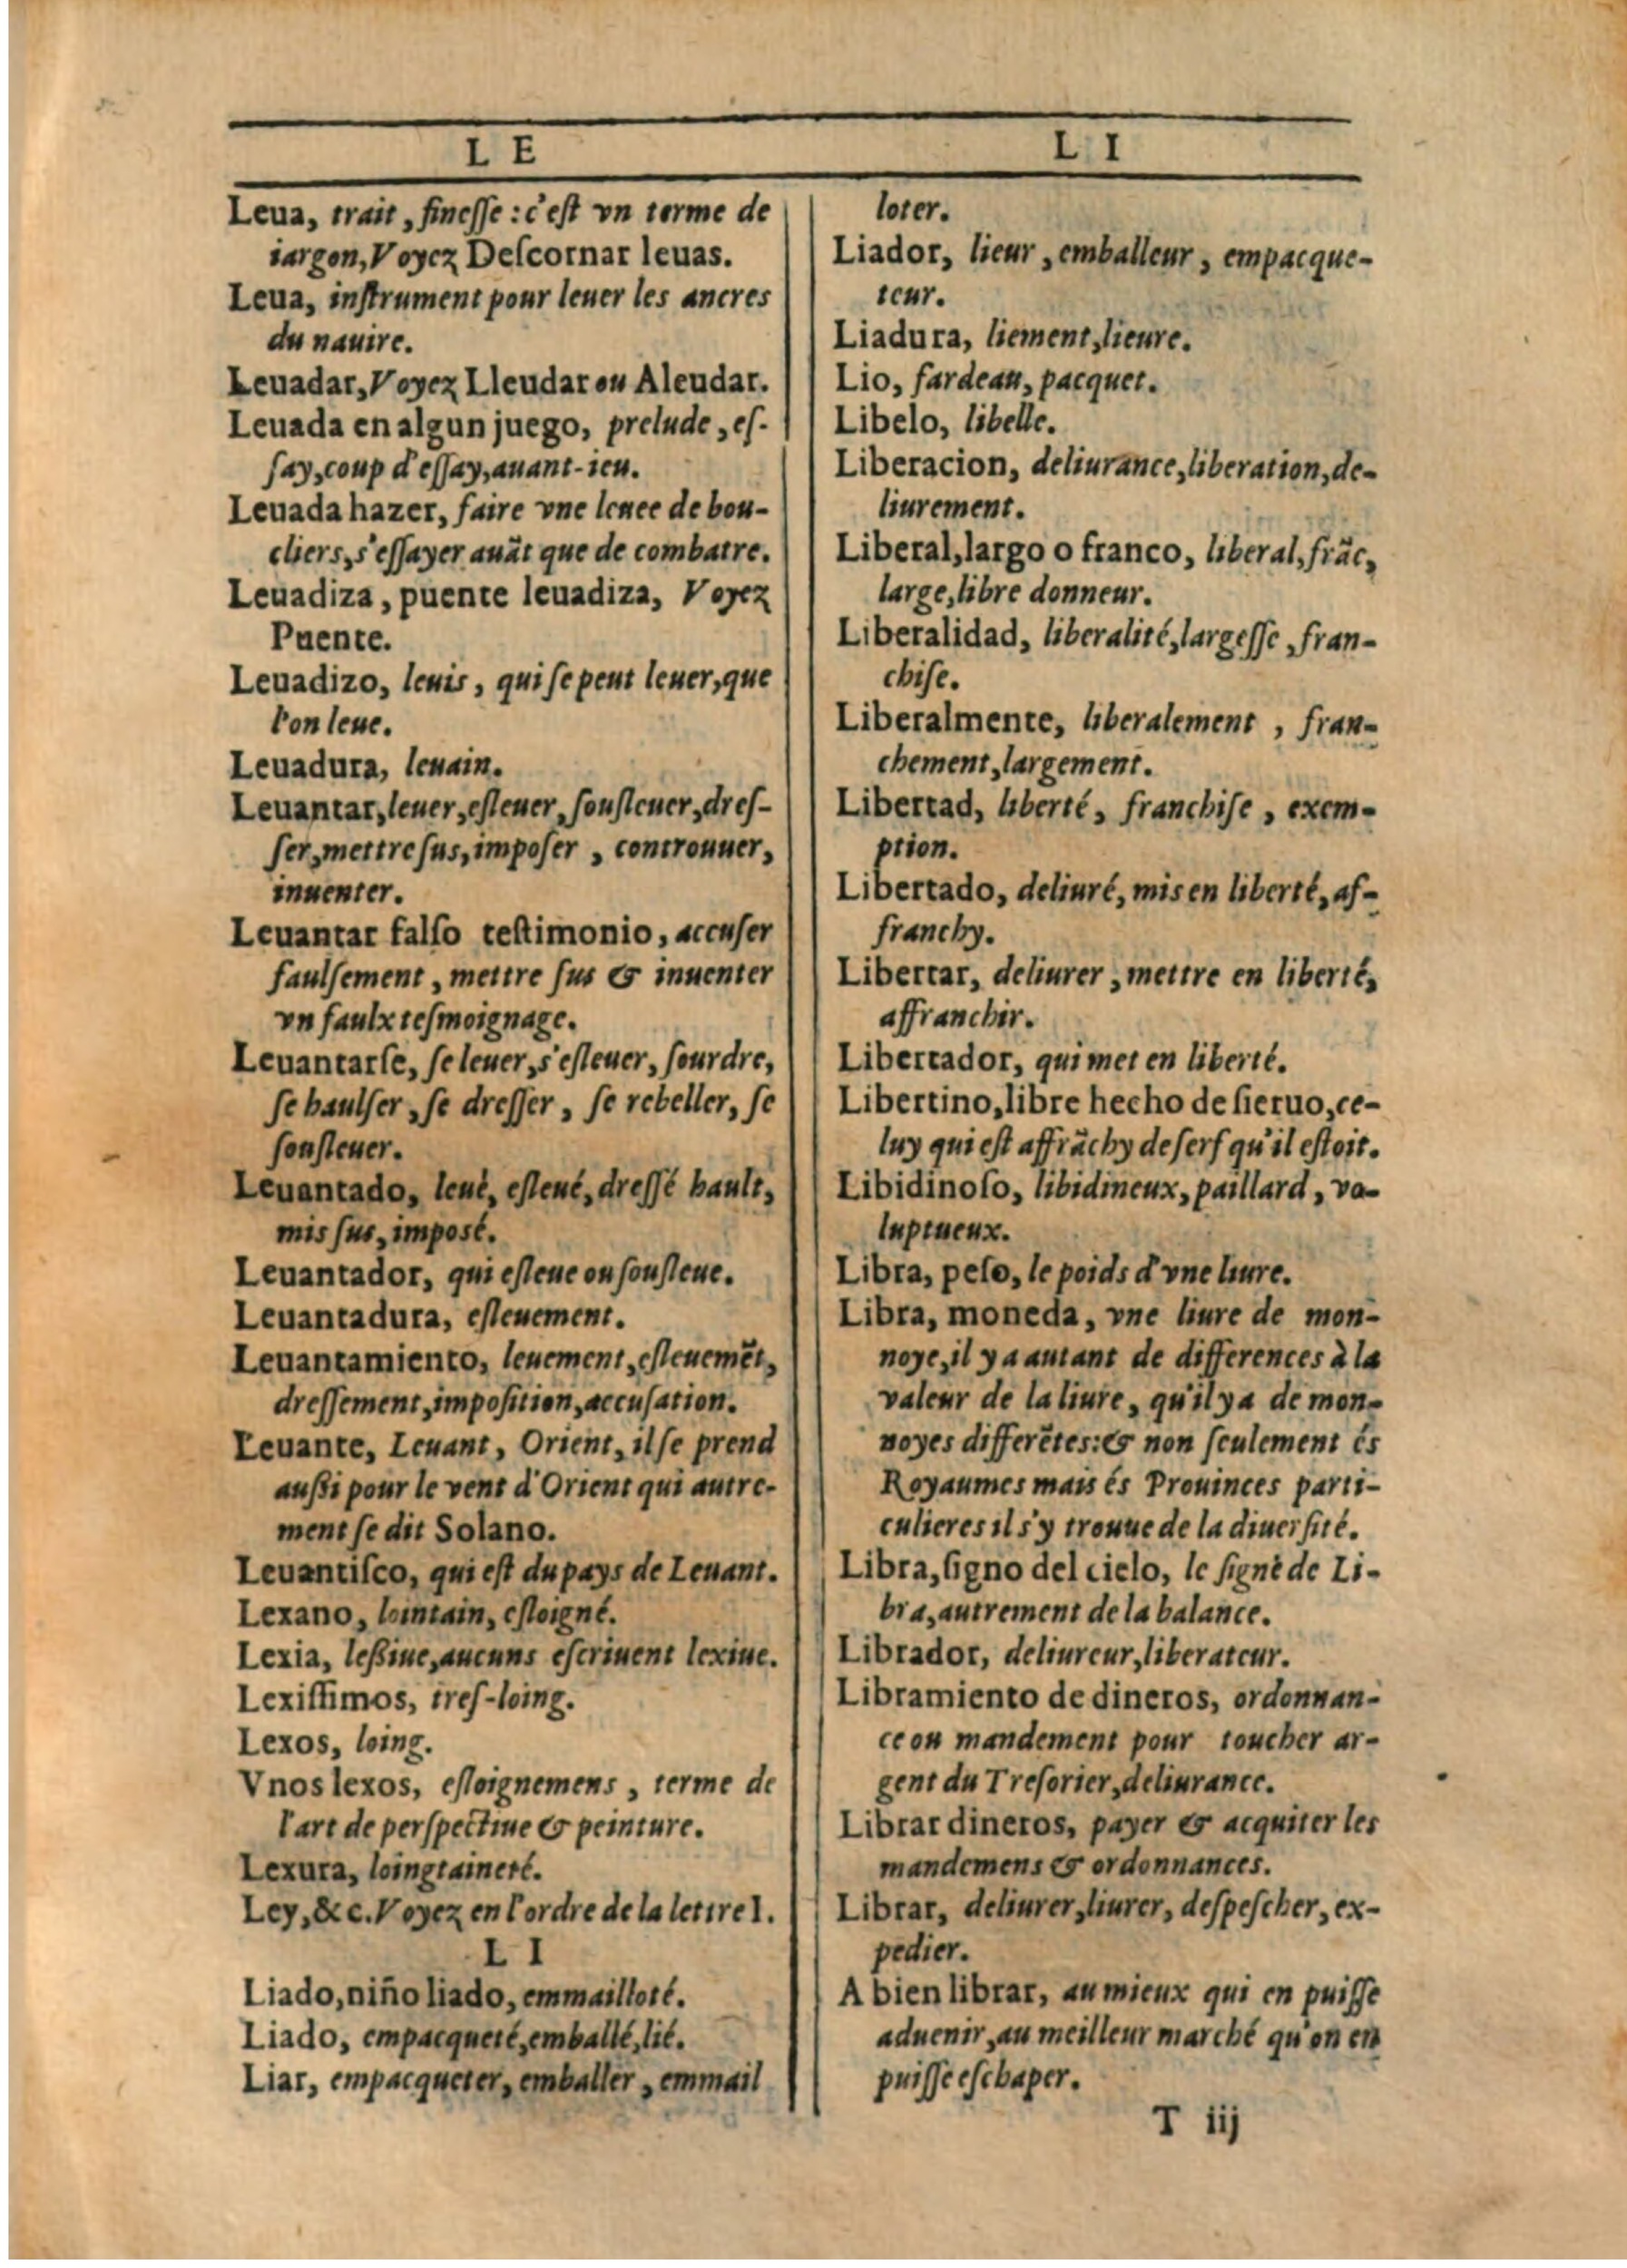 L E
Leua, trait, fineſſe : c'eſt vn terme de
iargon, Voyez Deſcornar leuas.
Leua, inſtrument pour leuer les ancres
du nauire.
Leuadar, Voyez Lleudar ou Aleudar.
Leuada en algun juego, prelude, eſ-
ſay, coup d'eſſay, auant-ieu.
Leuada hazer, faire vne leuee de bou-
cliers, s'eſſayer auãt que de combatre.
Leuadiza, puente leuadiza, Voyez
Puente.
Leuadizo, leuis, qui ſe peut leuer, que
l'on leue.
Leuadura, leuain.
Leuantar, leuer, eſleuer, ſouſleuer, dreſ-
ſer, mettre ſus, impoſer, controuuer,
inuenter.
Leuantar falſo teſtimonio, accuſer
faulſement, mettre ſus & inuenter
vn faulx teſmoignage.
Leuantarſe, ſe leuer, s'eſleuer, ſourdre,
ſe haulſer, ſe dreſſer, ſe rebeller, ſe
ſouſleuer.
Leuantado, leué, eſleué, dreſſé hault,
mis ſus, imposé.
Leuantador, qui eſleue ou ſouſleue.
Leuantadura, eſleuement.
Leuantamiento, leuement, eſleuemẽt,
dreſſement, impoſition, accuſation.
Leuante, Leuant, Orient, il ſe prend
außi pour le vent d'Orient qui autre-
ment ſe dit Solano.
Leuantiſco, qui eſt du pays de Leuant.
Lexano, lointain, eſloigné.
Lexia, leßiue, aucuns eſcriuent lexiue.
Lexiſſimos, treſ-loing.
Lexos, loing.
Vnos lexos, eſloignemens, terme de
l'art de perſpectiue & peinture.
Lexura, loingtaineté.
Ley, &c. Voyez en l'ordre de la lettre l.
L I
Liado, niño liado, emmailloté.
Liado, empacqueté, emballé, lié.
Liar, empacqueter, emballer, emmail
L I
loter.
Liador, lieur, emballeur, empacque-
teur.
Liadura, liement, lieure.
Lio, fardeau, pacquet.
Libelo, libelle.
Liberacion, deliurance, liberation, de-
liurement.
Liberal, largo o franco, liberal, frãc,
large, libre donneur.
Liberalidad, liberalité, largeſſe, fran-
chiſe.
Liberalmente, liberalement, fran-
chement, largement.
Libertad, liberté, franchiſe, exem-
ption.
Libertado, deliuré, mis en liberté, af-
franchy.
Libertar, deliurer, mettre en liberté,
affranchir.
Libertador, qui met en liberté.
Libertino, libre hecho de ſieruo, ce-
luy qui eſt affrãchy de ſerf qu'il eſtoit.
Libidinoſo, libidineux, paillard, vo-
luptueux.
Libra, peſo, le poids d'vne liure.
Libra, moneda, vne liure de mon-
noye, il y a autant de differences à la
valeur de la liure, qu'il y a de mon-
noyes differẽtes : & non ſeulement és
Royaumes mais és Prouinces parti-
culieres il s'y trouue de la diuerſité.
Libra, ſigno del cielo, le ſigne de Li-
bra, autrement de la balance.
Librador, deliureur, liberateur.
Libramiento de dineros, ordonnan-
ce ou mandement pour toucher ar-
gent du Treſorier, deliurance.
Librar dineros, payer & acquiter les
mandemens & ordonnances.
Librar, deliurer, liurer, deſpeſcher, ex-
pedier.
A bien librar, au mieux qui en puiſſe
aduenir, au meilleur marché qu'on en
puiſſe eſchaper.
T iij